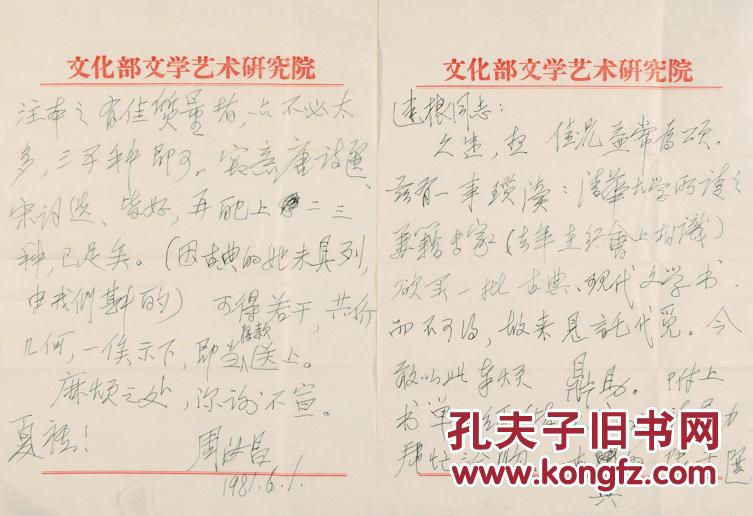 文化部文学艺术研究院
建根同志：
久违，想 佳况益常为颂。
兹有一事琐渎：清华大学所请之
美籍专家（去年在红会上相识）
欲买一批古典、现代文学书，
而不可得，故来恳託代觅。今
敢以此事烦 鼎助。附上
书单
帮忙
文化部文学艺术研究院
注本之有佳质量者，亦不必太
多，三五种即可。窃意唐诗选、
宋词选、皆好，再配上二三
种，已足矣。（因古典的她未具列
由我们斟的） 可得若干，共价
几何，一俟示下，即当将款送上。
麻烦之处，深谢不宣。
夏禧！
周汝昌
1981.6.1.
孔夫子旧书网
www.kongfz.com